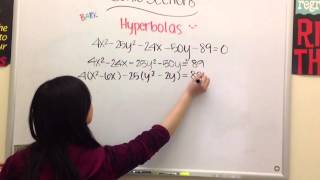 Conic Sections
Hyperbolas
4x²-25y²-24x-50y-89=0
4x²-24x-25y²-50y=89
4(x²-6x)-25(y²-2y)=89